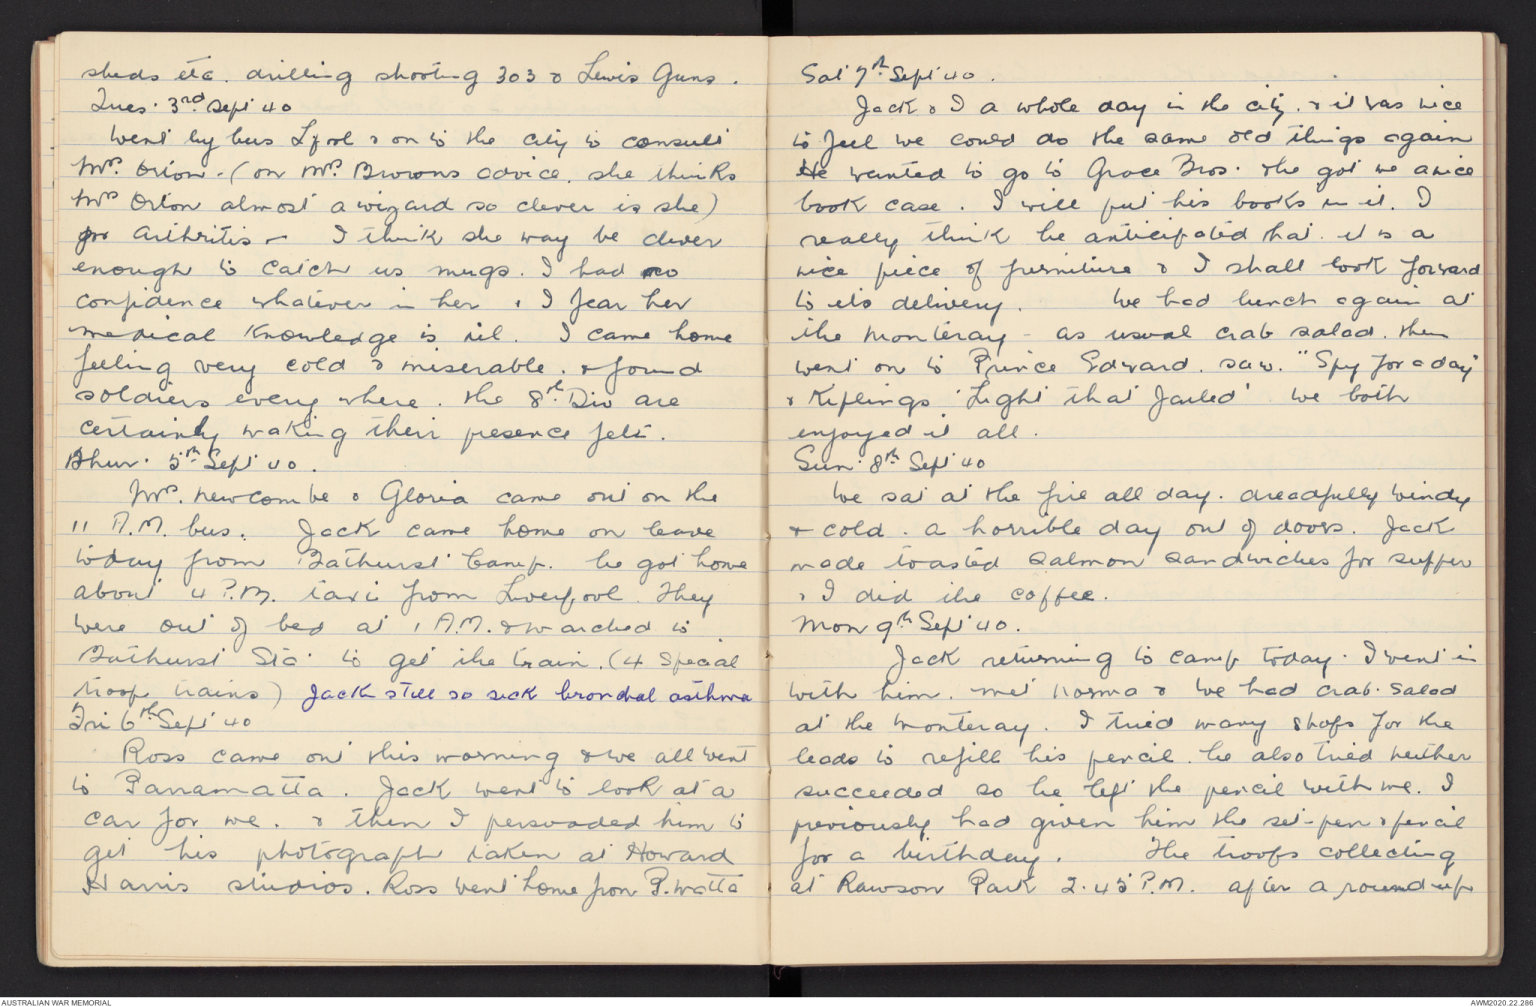 sheds etc. drilling shooting 303 & Lewis Guns.
Tues. 3rd Sept 40
Went by bus L'pool & on to the city to consult
Mrs. Orton. (on Mrs. Browns advice. she thinks
Mrs Orton almost a wizard so clever is she)
for arthritis – I think she may be clever
enough to catch us mugs. I had no
confidence whatever in her & I fear her
medical knowledge is nil. I came home
feeling very cold & miserable. & found
soldiers every where. the 8th Div are
certainly making their presence felt.
Thur. 5th Sept 40.
Mrs. Newcombe & Gloria came out on the
11 A.M. bus. Jack came home on leave
today from Bathurst Camp. he got home
about 4 P.M. taxi from Liverpool. They
were out of bed at 1 A.M. & marched to
Bathurst Sta. to get the train. (4 special
troop trains) Jack still so sick bronchal asthma
Fri 6th Sept 40
Ross came out this morning & we all went
to Parramatta. Jack went to look at a
car for me. & then I persuaded him to
get his photograph taken at Howard
Harris studios. Ross went home from P.matta
Sat 7th Sept 40.
Jack & I a whole day in the city. & it was nice
to feel we could do the same old things again
He wanted to go to Grace Bros. & he got me a nice
book case. I will put his books in it. I
really think he anticipated that. it is a
nice piece of furniture & I shall look forward
to its delivery. We had lunch again at
the Monteray – as usual crab salad. then
went on to Prince Edward. saw. "Spy for a day"
& Kiplings 'Light that failed' we both
enjoyed it all.
Sun. 8th Sept 40
We sat at the fire all day. dreadfully windy
& cold. a horrible day out of doors. Jack
made toasted salmon sandwiches for supper
& I did the coffee.
Mon 9th Sept 40.
Jack returning to camp today. I went in
with him. met Norma & we had crab. salad
at the Monteray. I tried many shops for the
leads to refill his pencil. he also tried neither
succeeded so he left the pencil with me. I
previously had given him the set-pen & pencil
for a birthday. The troops collecting
at Rawson Park 2.45 P.M. after a round-up
AUSTRALIAN WAR MEMORIAL
AWM2020.22.286